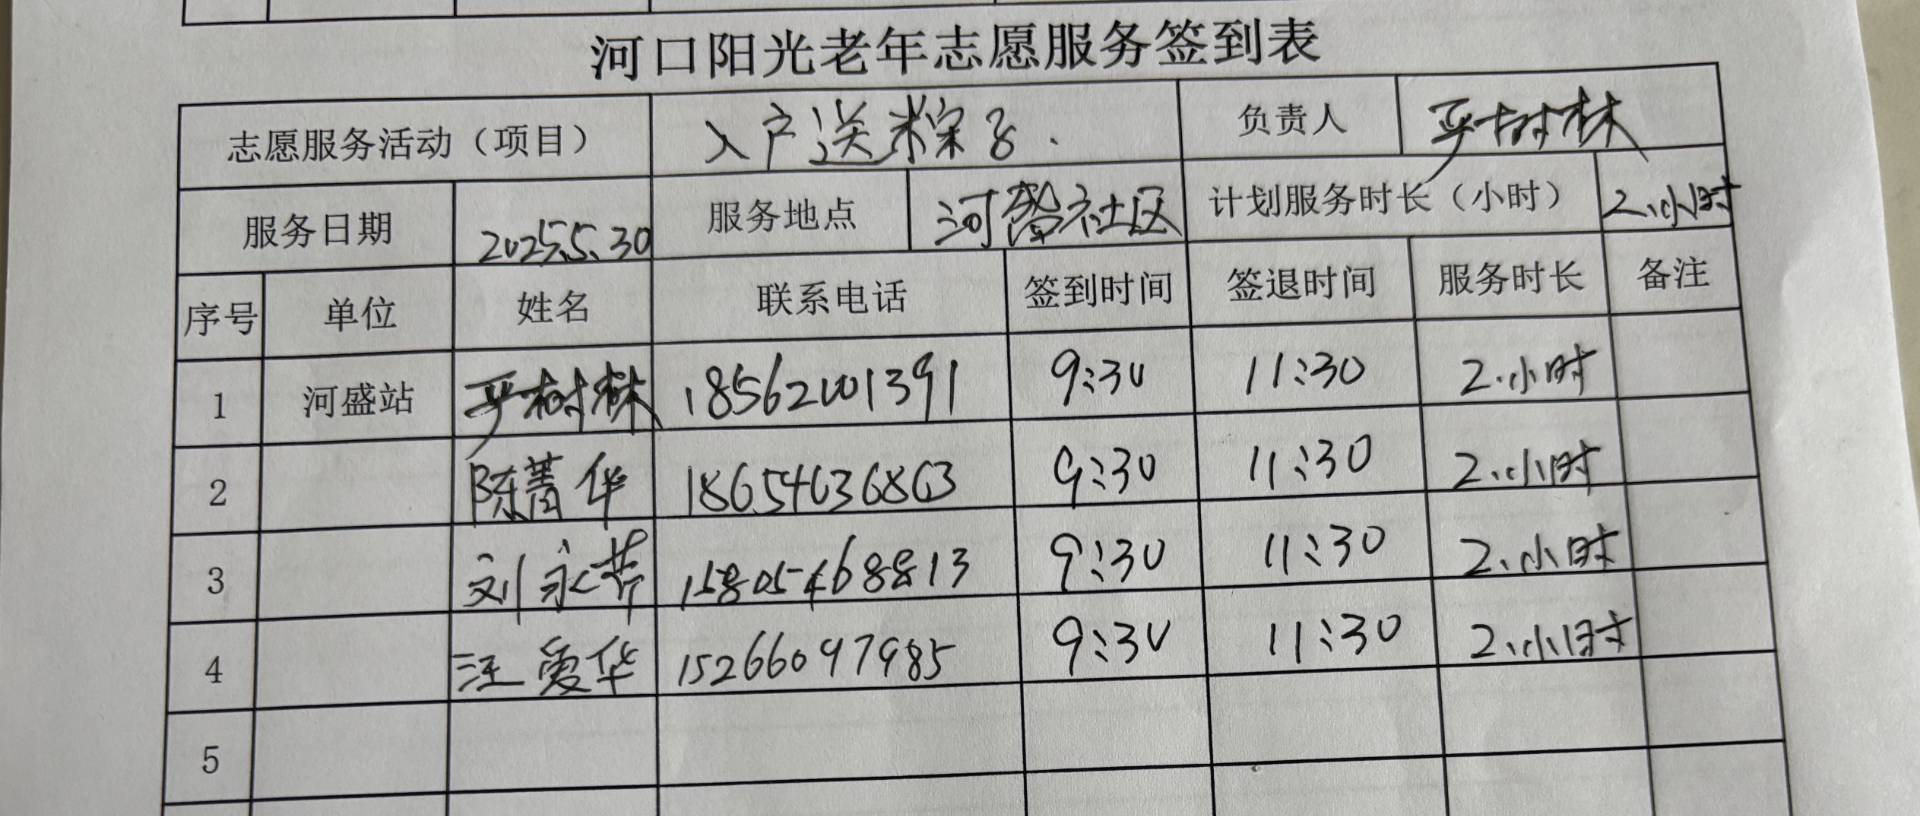 河口阳光老年志愿服务签到表
志愿服务活动（项目） 入户送粽子. 负责人 严树林
服务日期 2025.5.30 服务地点 河盛社区 计划服务时长（小时） 2.小时
序号 单位 姓名 联系电话 签到时间 签退时间 服务时长 备注
1 河盛站 严树林 18562001391 9:30 11:30 2.小时
2 陈菁华 18654636863 9:30 11:30 2.小时
3 刘永芳 15805468813 9:30 11:30 2.小时
4 汪爱华 15266097985 9:30 11:30 2.小时
5